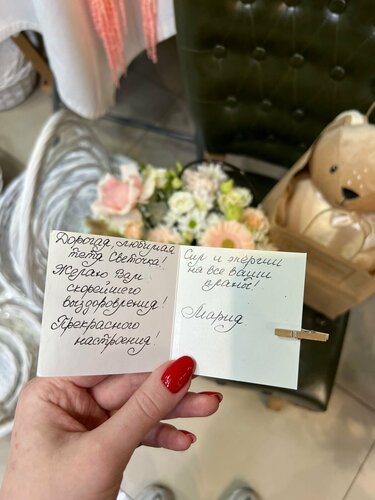 Дорогая, любимая
тета Светочка!
Желаю Вам
скорейшего
выздоровления!
Прекрасного
настроения!
Сил и энергии
на все ваши
планы!
Мария